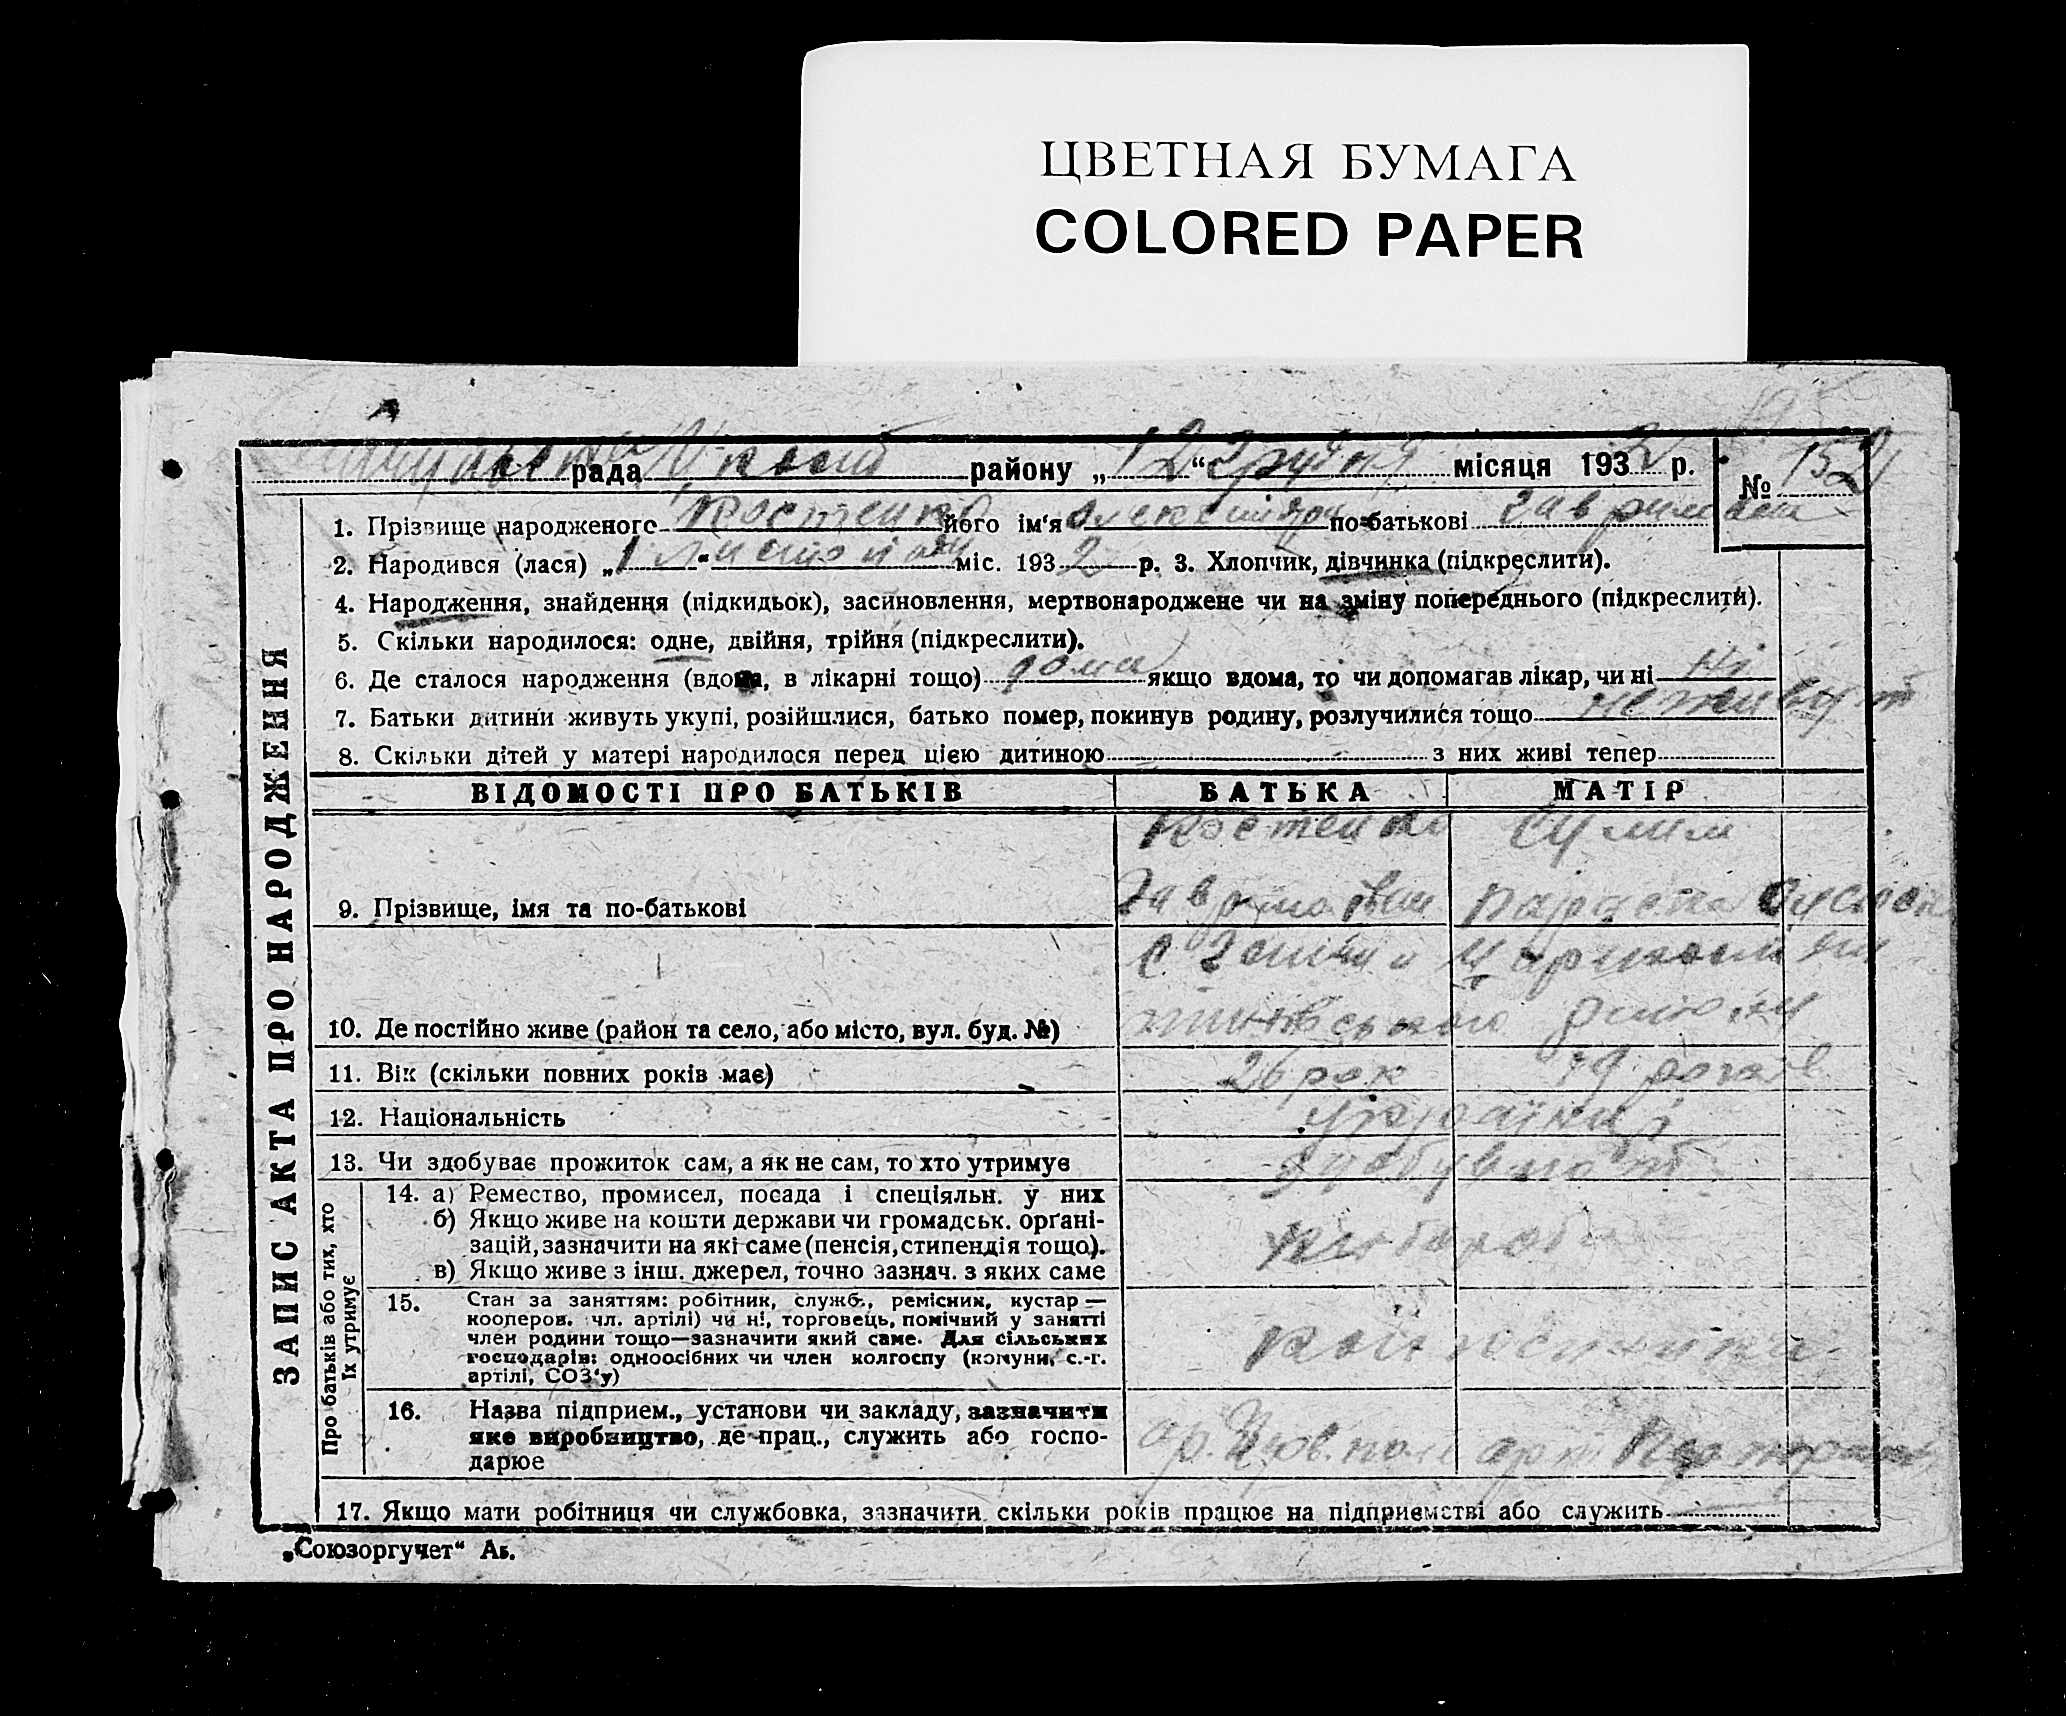 ЦВЕТНАЯ БУМАГА
COLORED PAPER
рада району „12“ Грудня місяця 1932 р. № 152
1. Прізвище народженого Костенко його ім‘я Олександра по-батькові
2. Народився (лася) „1 листопаду“ міс. 1932 р. 3. Хлопчик, дівчинка (підкреслити).
4. Народження, знайдення (підкидьок), засиновлення, мертвонароджене чи на зміну попереднього (підкреслити).
5. Скільки народилося: одне, двійня, трійня (підкреслити).
6. Де сталося народження (вдома, в лікарні тощо) дома якщо вдома, то чи допомагав лікар, чи ні ні
7. Батьки дитини живуть укупі, розійшлися, батько помер, покинув родину, розлучилися тощо не живут
8. Скільки дітей у матері народилося перед цією дитиною з них живі тепер
ВІДОМОСТІ ПРО БАТЬКІВ БАТЬКА МАТІР
Костенко
9. Прізвище, імя та по-батькові
10. Де постійно живе (район та село, або місто, вул. буд. №) району
11. Вік (скільки повних років має) 26 рок 19 років
12. Національність українці
13. Чи здобуває прожиток сам, а як не сам, то хто утримує здобувают
14. а) Ремество, промисел, посада і спеціяльн. у них
б) Якщо живе на кошти держави чи громадськ. орґані-
зацій, зазначити на які саме (пенсія, стипендія тощо).
в) Якщо живе з інш. джерел, точно зазнач. з яких саме
хлібороби
15. Стан за заняттям: робітник, служб., ремісник, кустар —
кооперов. чл. артілі) чи ні, торговець, помічний у занятті
член родини тощо—зазначити який саме. Для сільських
господарів: одноосібних чи член колгоспу (комуни, с.-г.
артілі, СОЗ‘у)
16. Назва підприєм., установи чи закладу, зазначити
яке виробництво, де прац., служить або госпо-
дарює
17. Якщо мати робітниця чи службовка, зазначити скільки років працює на підприємстві або служить
„Союзоргучет“ Аг.
ЗАПИС АКТА ПРО НАРОДЖЕННЯ
Про батьків або тих, хто
їх утримує